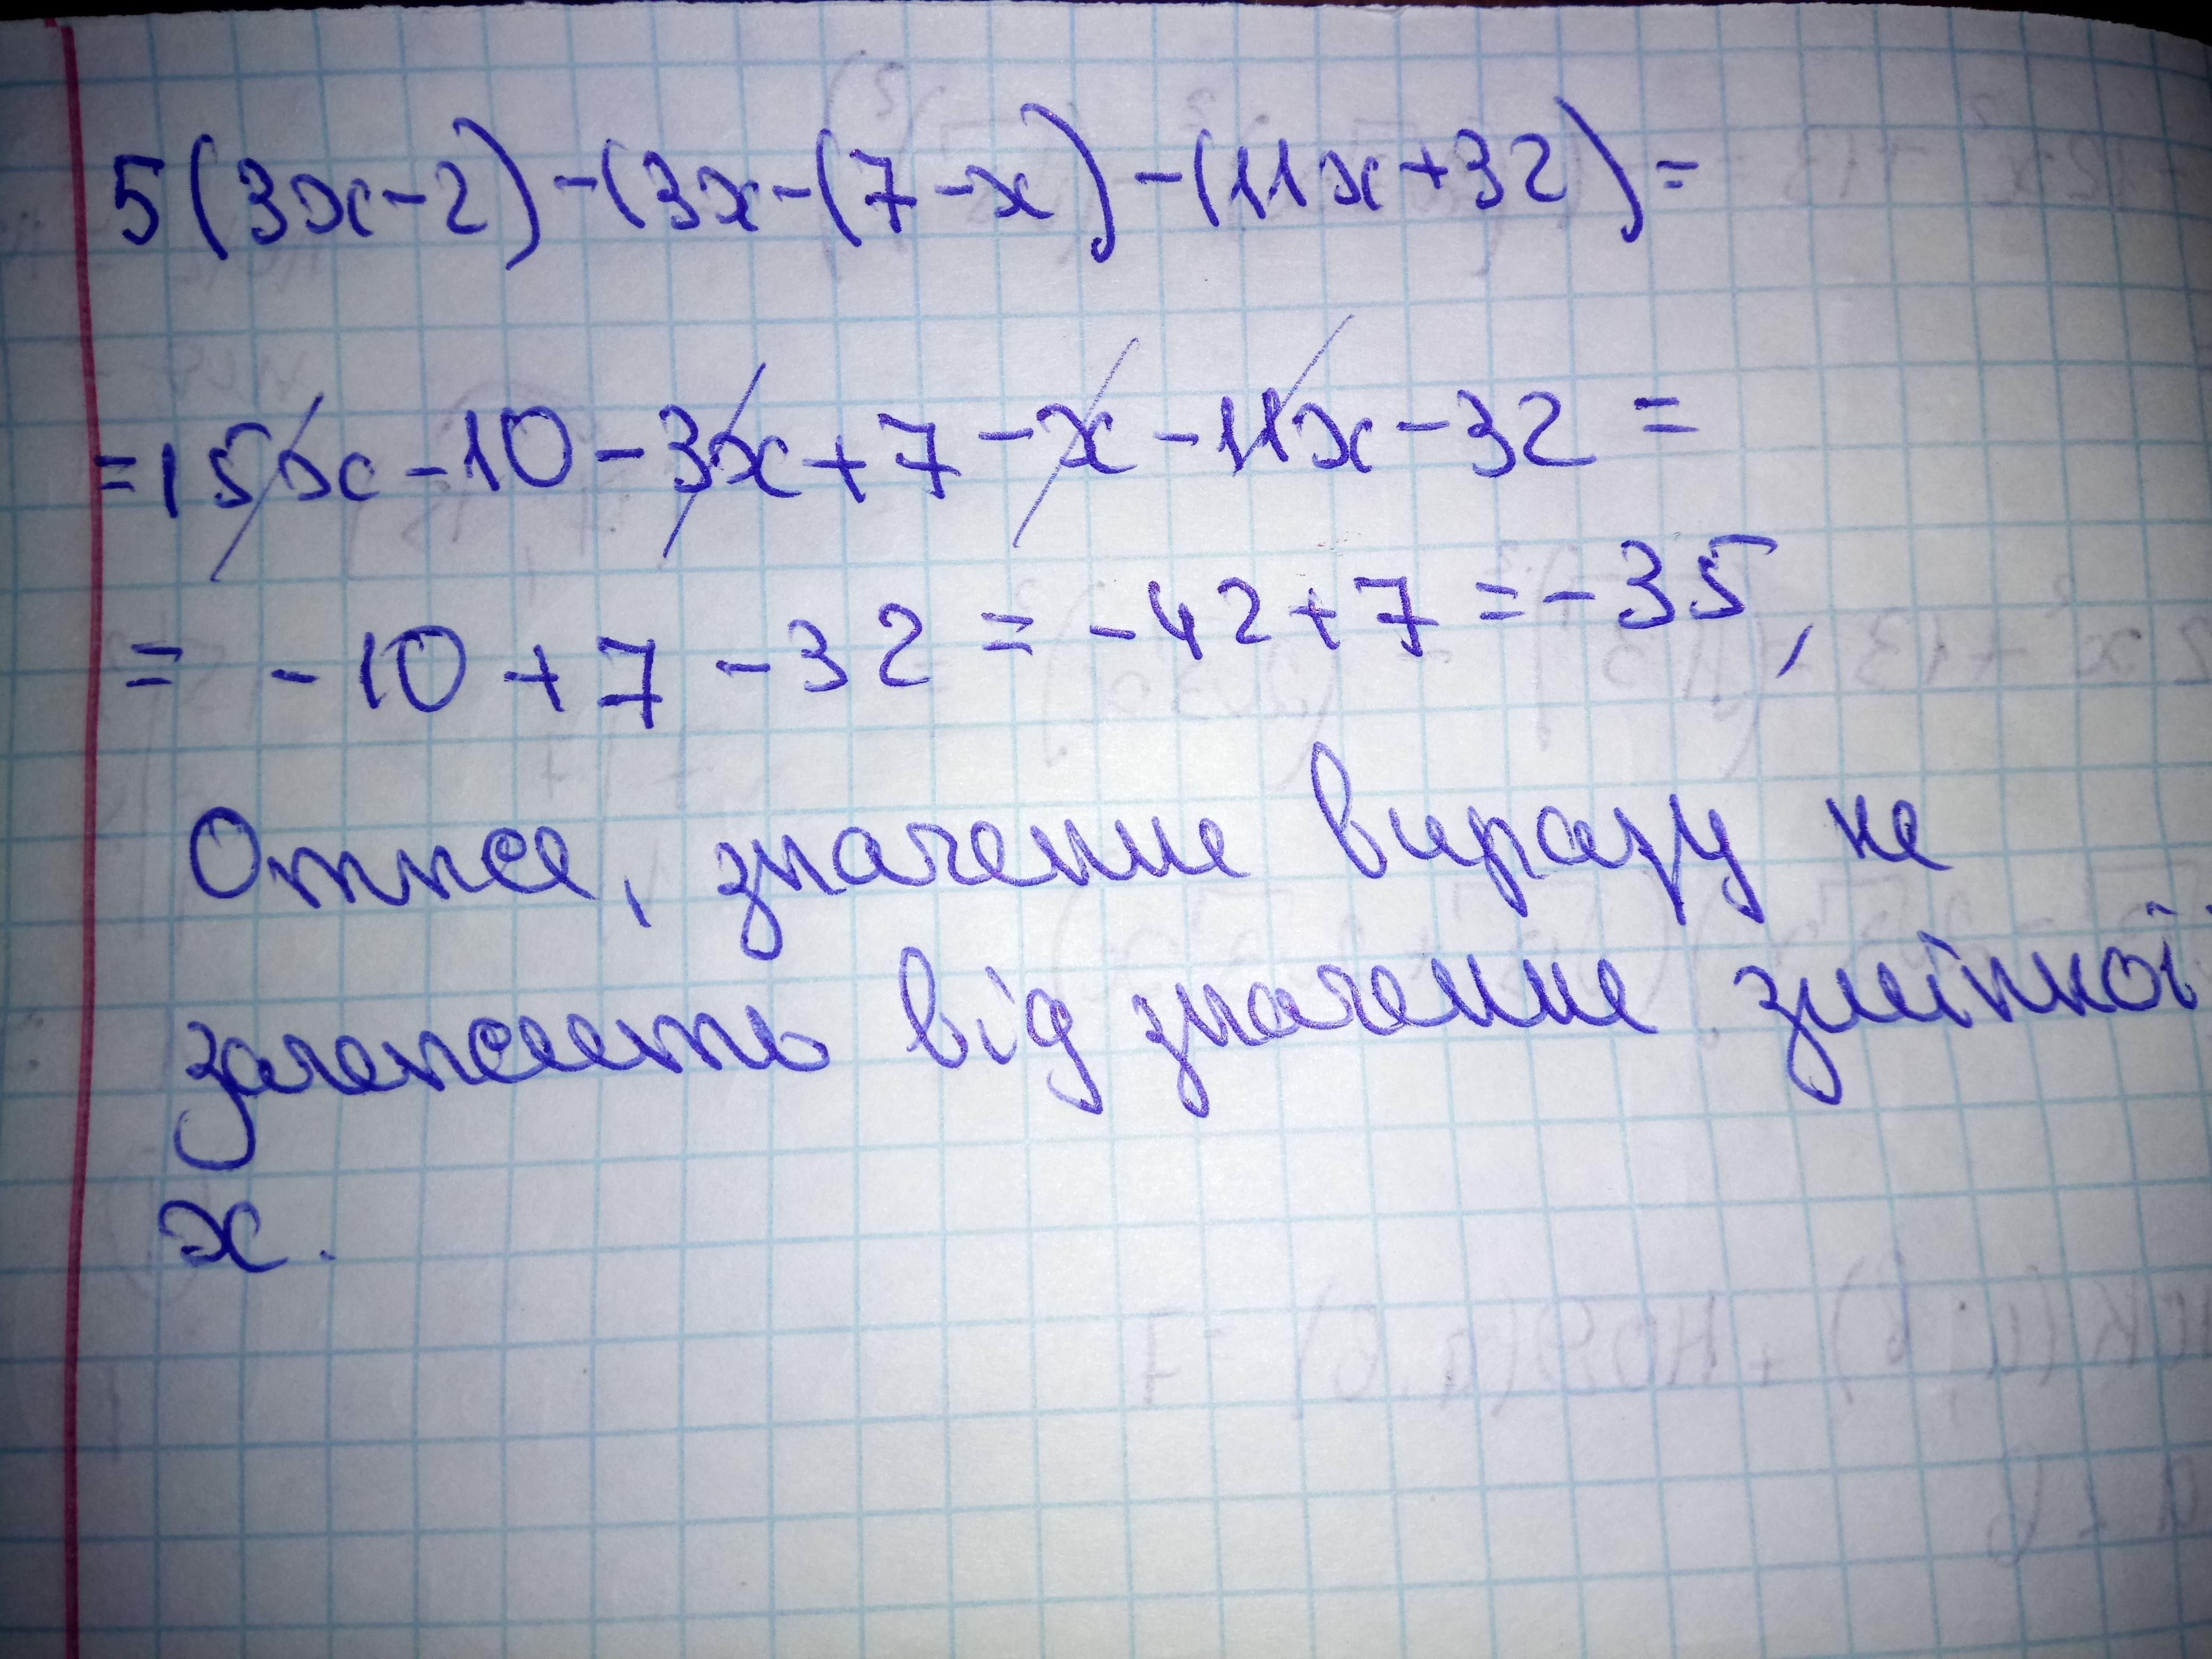 5(3x-2)-(3x-(7-x)-(11x+32)=
=15x-10-3x+7-x-11x-32=
=-10+7-32=-42+7=-35,
Отже, значення виразу не
залежить від значення змінної
x.